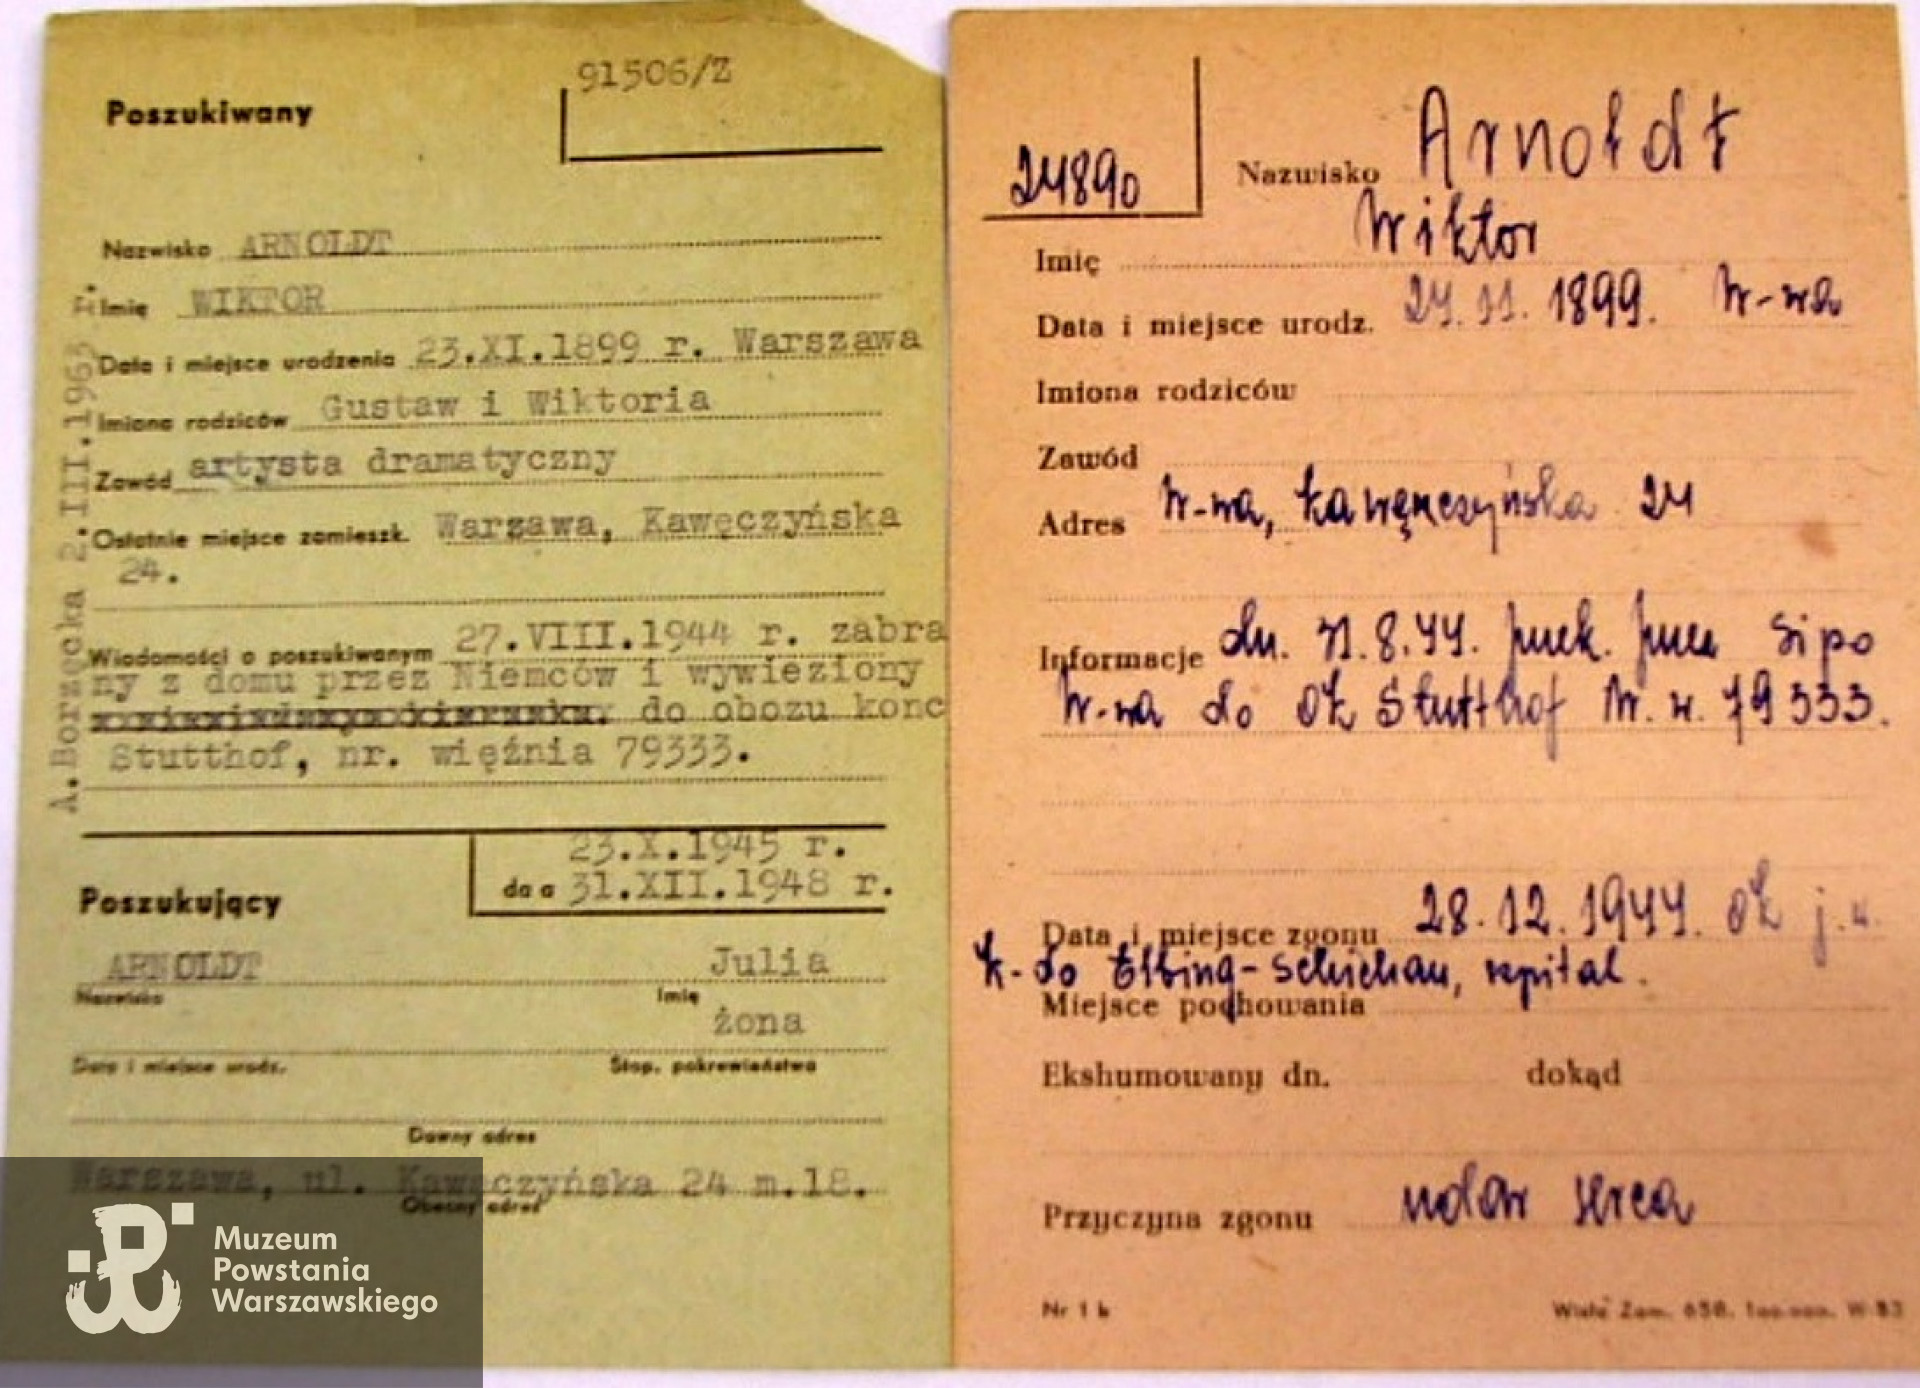 91506/Z
Poszukiwany
Nazwisko ARNOLDT
Imię WIKTOR
Data i miejsce urodzenia 23.XI.1899 r. Warszawa
Imiona rodziców Gustaw i Wiktoria
Zawód artysta dramatyczny
Ostatnie miejsce zamieszk. Warszawa, Kawęczyńska
24.
Wiadomości o poszukiwanym 27.VIII.1944 r. zabra
ny z domu przez Niemców i wywieziony
do obozu konc
Stutthof, nr. więźnia 79333.
A.Borzęcka 2.III.1963 r.
23.X.1945 r.
Poszukujący
31.XII.1948 r.
ARNOLDT Julia
Nazwisko Imię
żona
Data i miejsce urodz. Stop. pokrewieństwa
Dawny adres
Warszawa, ul. Kawęczyńska 24 m.18.
Obecny adres
Muzeum
Powstania
Warszawskiego
24890
Nazwisko Arnoldt
Imię Wiktor
Data i miejsce urodz. 24.11.1899. W-wa
Imiona rodziców
Zawód
Adres W-wa, Kawęczyńska 24
Informacje dn. 31.8.44. przek. przez Sipo
W-wa do ok Stutthof Nr. w. 79333.
Data i miejsce zgonu 28.12.1944. ok j.w.
k-do Elbing-Schichau, szpital.
Miejsce pochowania
Ekshumowany dn. dokąd
Przyczyna zgonu udar serca
Nr 1 b
Zam. 650. W-83